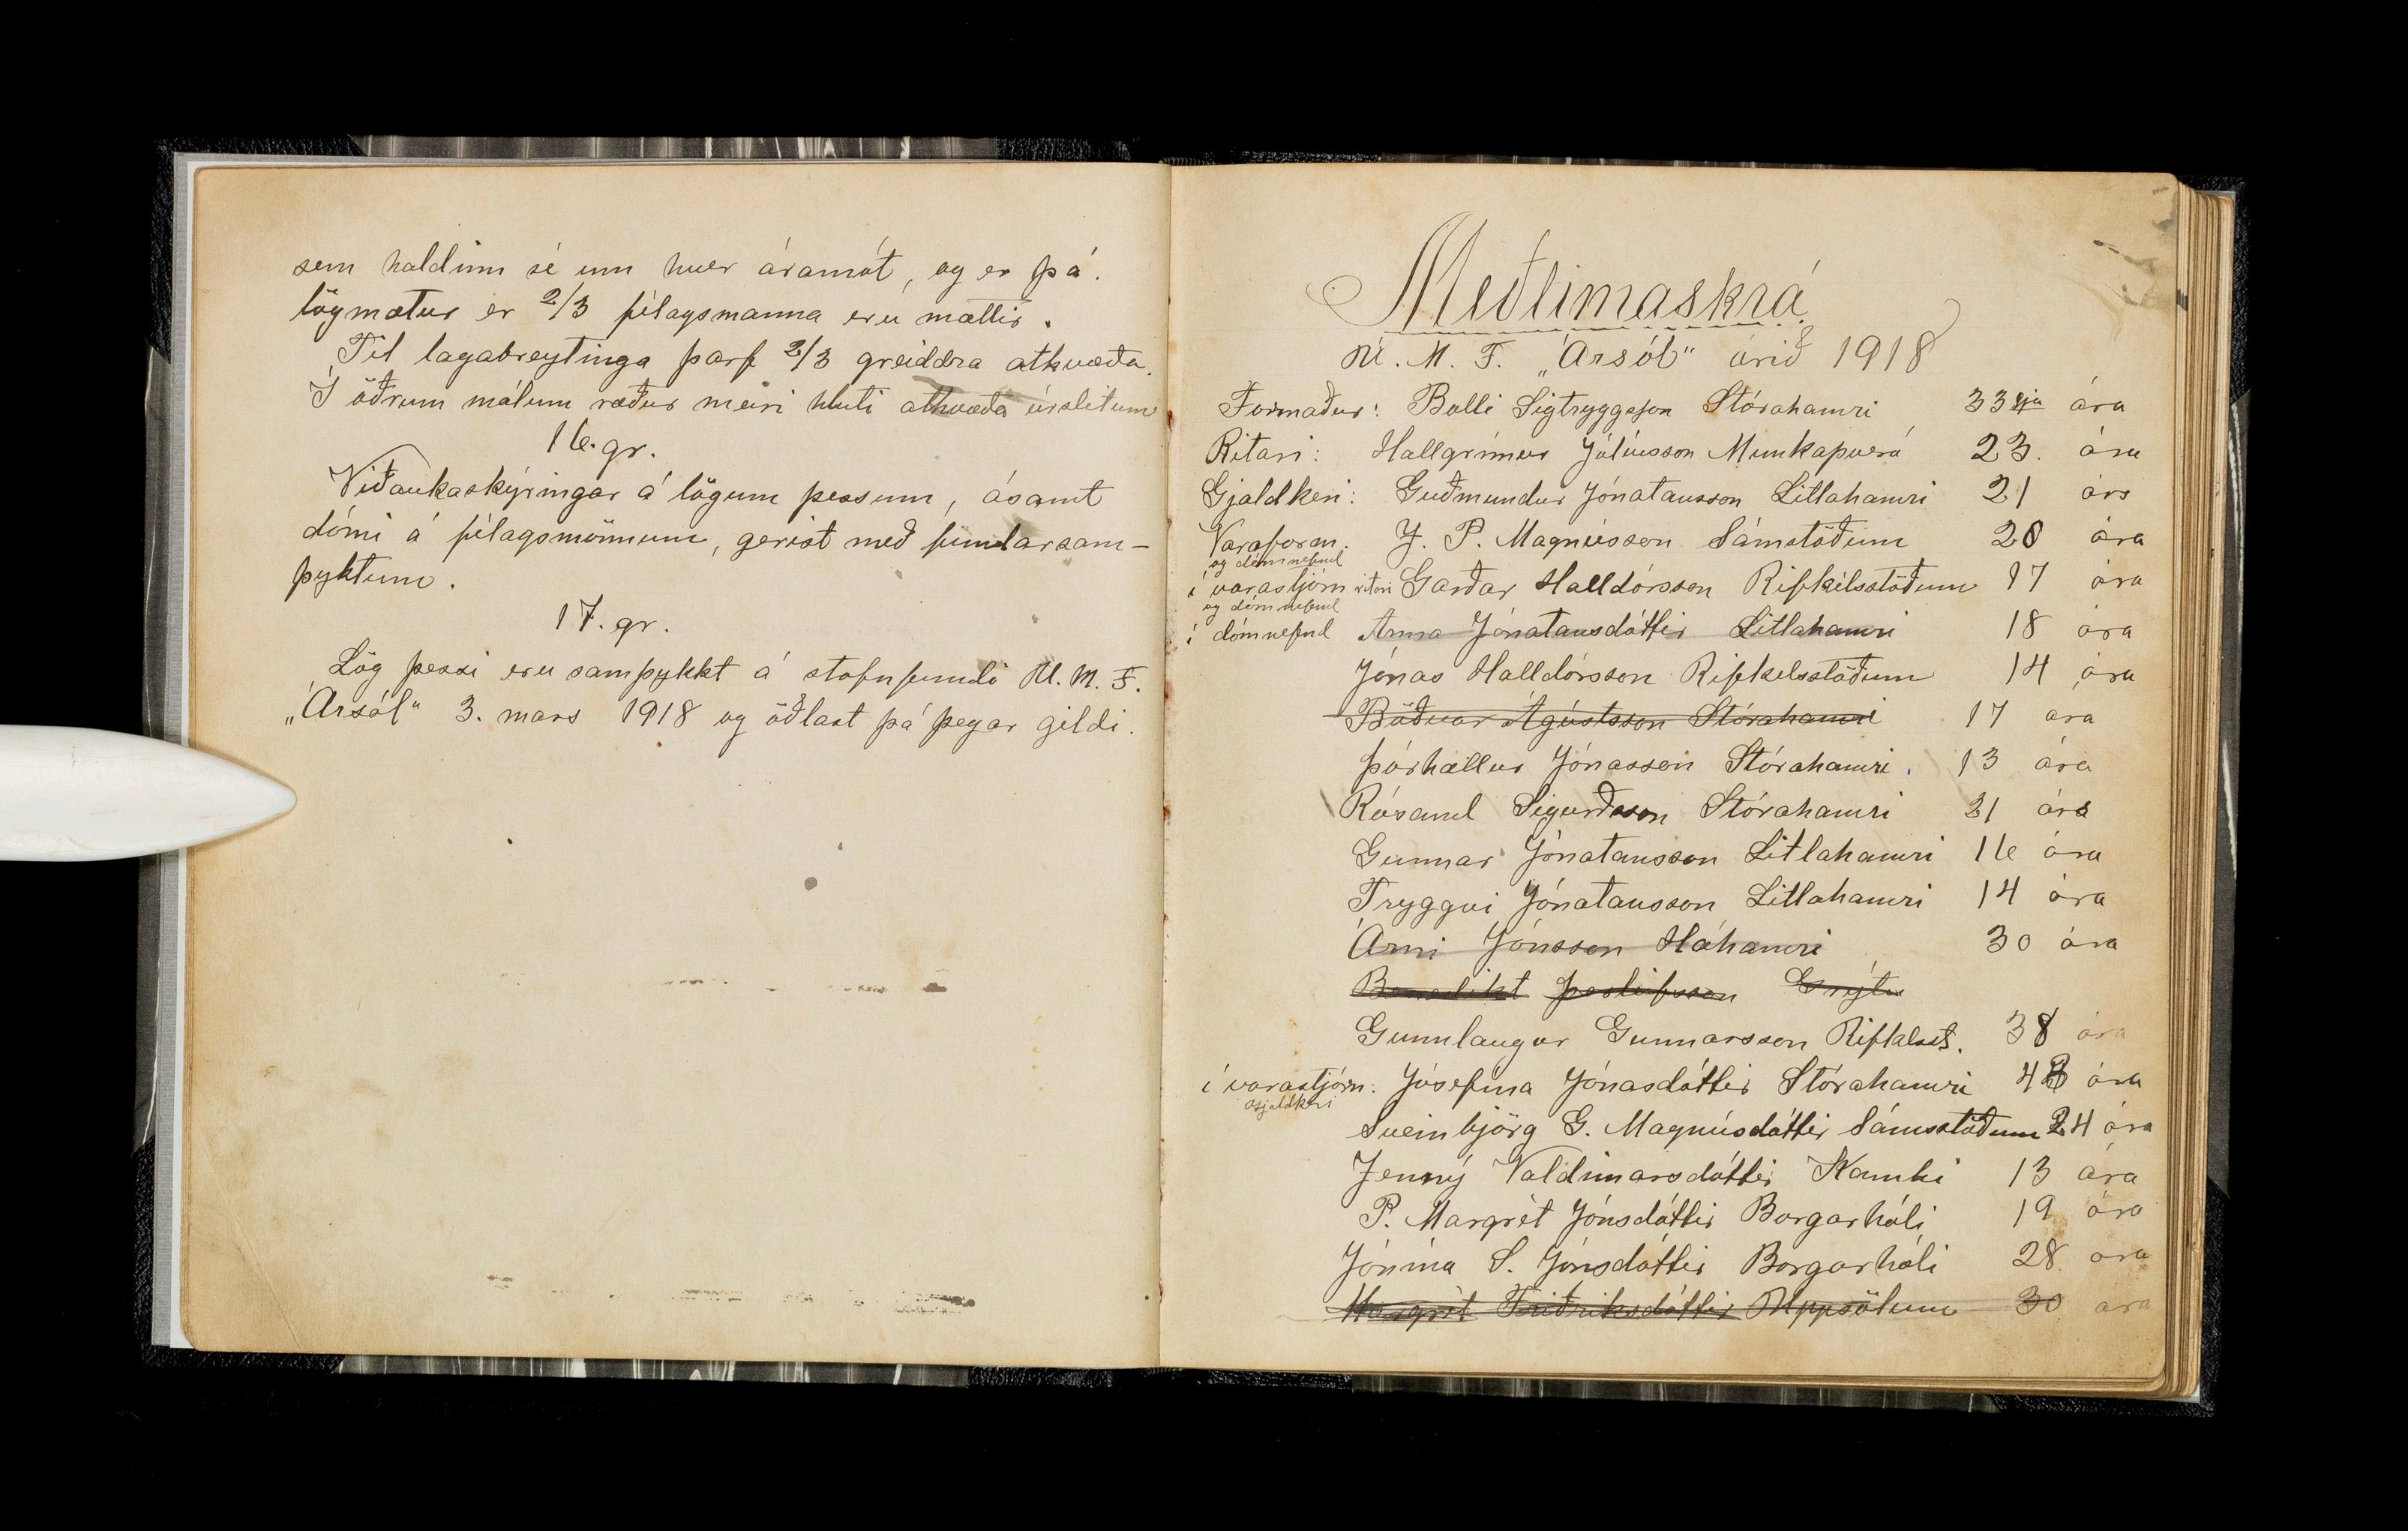 sem haldinn sé um hver áramót, og er þá
lögmætur er 2/3 félagsmanna eru mættir.
Til lagabreytinga þarf 2/3 greiddra atkvæða.
Í öðrum málum ræður meiri hluti atkvæða úrslitum
16. gr.
Viðaukaskýringar á lögum þessum, ásamt
dómi á félagsmönnum, gerist með fundarsam-
þyktum.
17. gr.
Lög þessi eru samþykkt á stofnfundi U. M. F.
„Ársól" 3. mars 1918 og öðlast þá þegar gildi.
Meðlimaskrá
U. M. F. „Ársól" árið 1918
Formaður: Bolli Sigtryggsson Stórahamri 33 ára
Ritari: Hallgrímur Júlíusson Munkaþverá 23. ára
Gjaldkeri: Guðmundur Jónatansson Litlahamri 21 árs
Varaform. J. P. Magnússon Sámstöðum 20 ára
og dómnefnd
í varastjórn ritari Garðar Halldórsson Rifkélsstöðum 17 ára
og dómnefnd
í dómnefnd Anna Jónatansdóttir Litlahamri 18 ára
Jónas Halldórsson Rifkelsstöðum 14 ára
Böðvar Ágústsson Stórahamri 17 ára
Þórhallur Jónasson Stórahamri. 13 ára
Rósant Sigurðsson Stórahamri 21 árs
Gunnar Jónatansson Litlahamri 16 ára
Tryggvi Jónatansson Litlahamri 14 ára
Árni Jónsson Háhamri 30 ára
Benedikt Þorleifsson Grýtu
Gunnlaugur Gunnarsson Rifkelsst. 38 ára
í varastjórn: Jósefína Jónasdóttir Stórahamri 43 ára
gjaldkeri
Sveinbjörg G. Magnúsdóttir Sámsstöðum 24 ára
Jenný Valdimarsdóttir Kambi 13 ára
P. Margrét Jónsdóttir Borgarhóli 19 ára
Jónína S. Jónsdóttir Borgarhóli 28 ára
Margrét Friðriksdóttir Uppsölum 30 ára